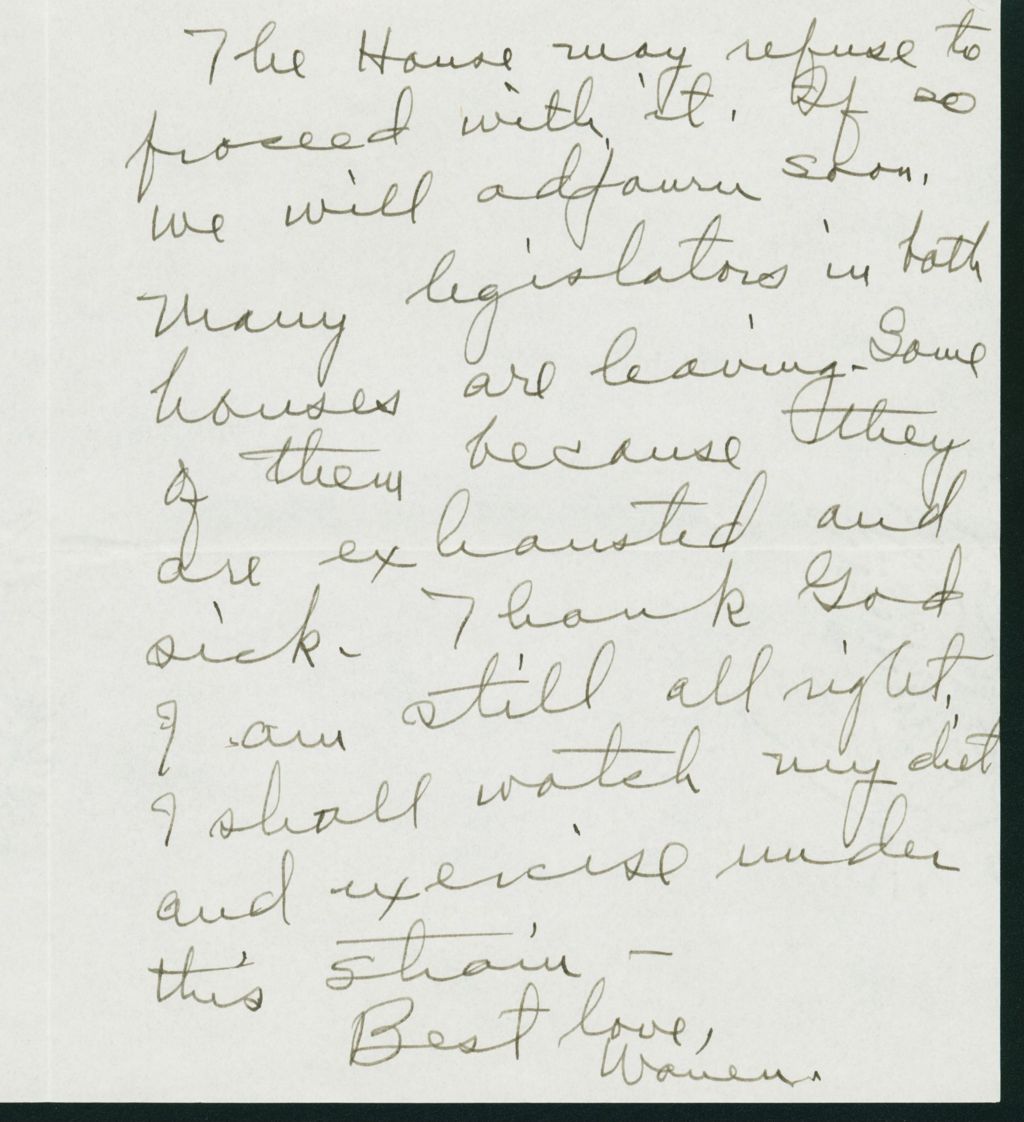 The House may refuse to
proceed with it. If so
we will adjourn soon.
Many legislators in both
houses are leaving. Some
of them because they
are exhausted and
sick. Thank God
I am still all right.
I shall watch my diet
and exercise under
this strain —
Best love,
Warren.